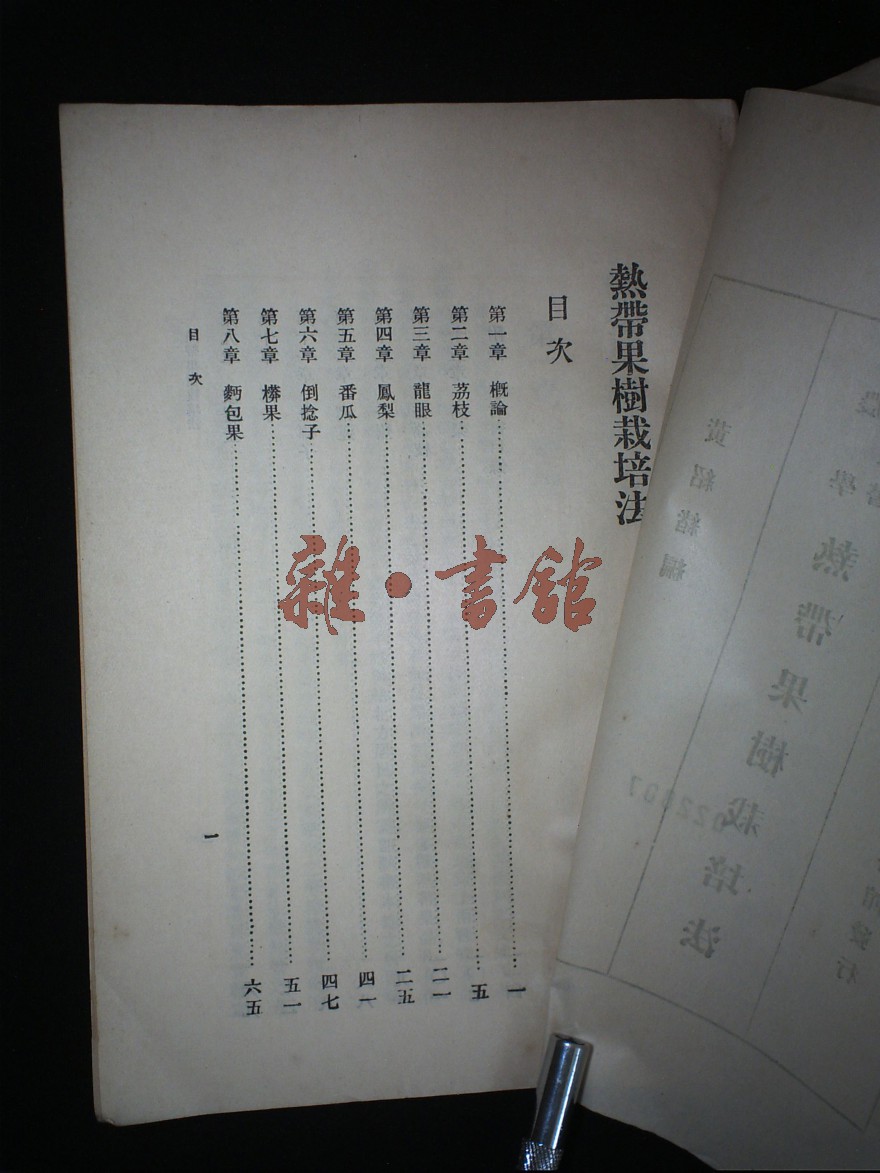 熱帶果樹栽培法
目次
第一章 概論 一
第二章 荔枝 五
第三章 龍眼 二一
第四章 鳳梨 二五
第五章 番瓜 四一
第六章 倒捻子 四七
第七章 檬果 五一
第八章 麪包果 六五
目次
一
雜·書館
熱帶果樹栽培法
黃紹緒編
發行